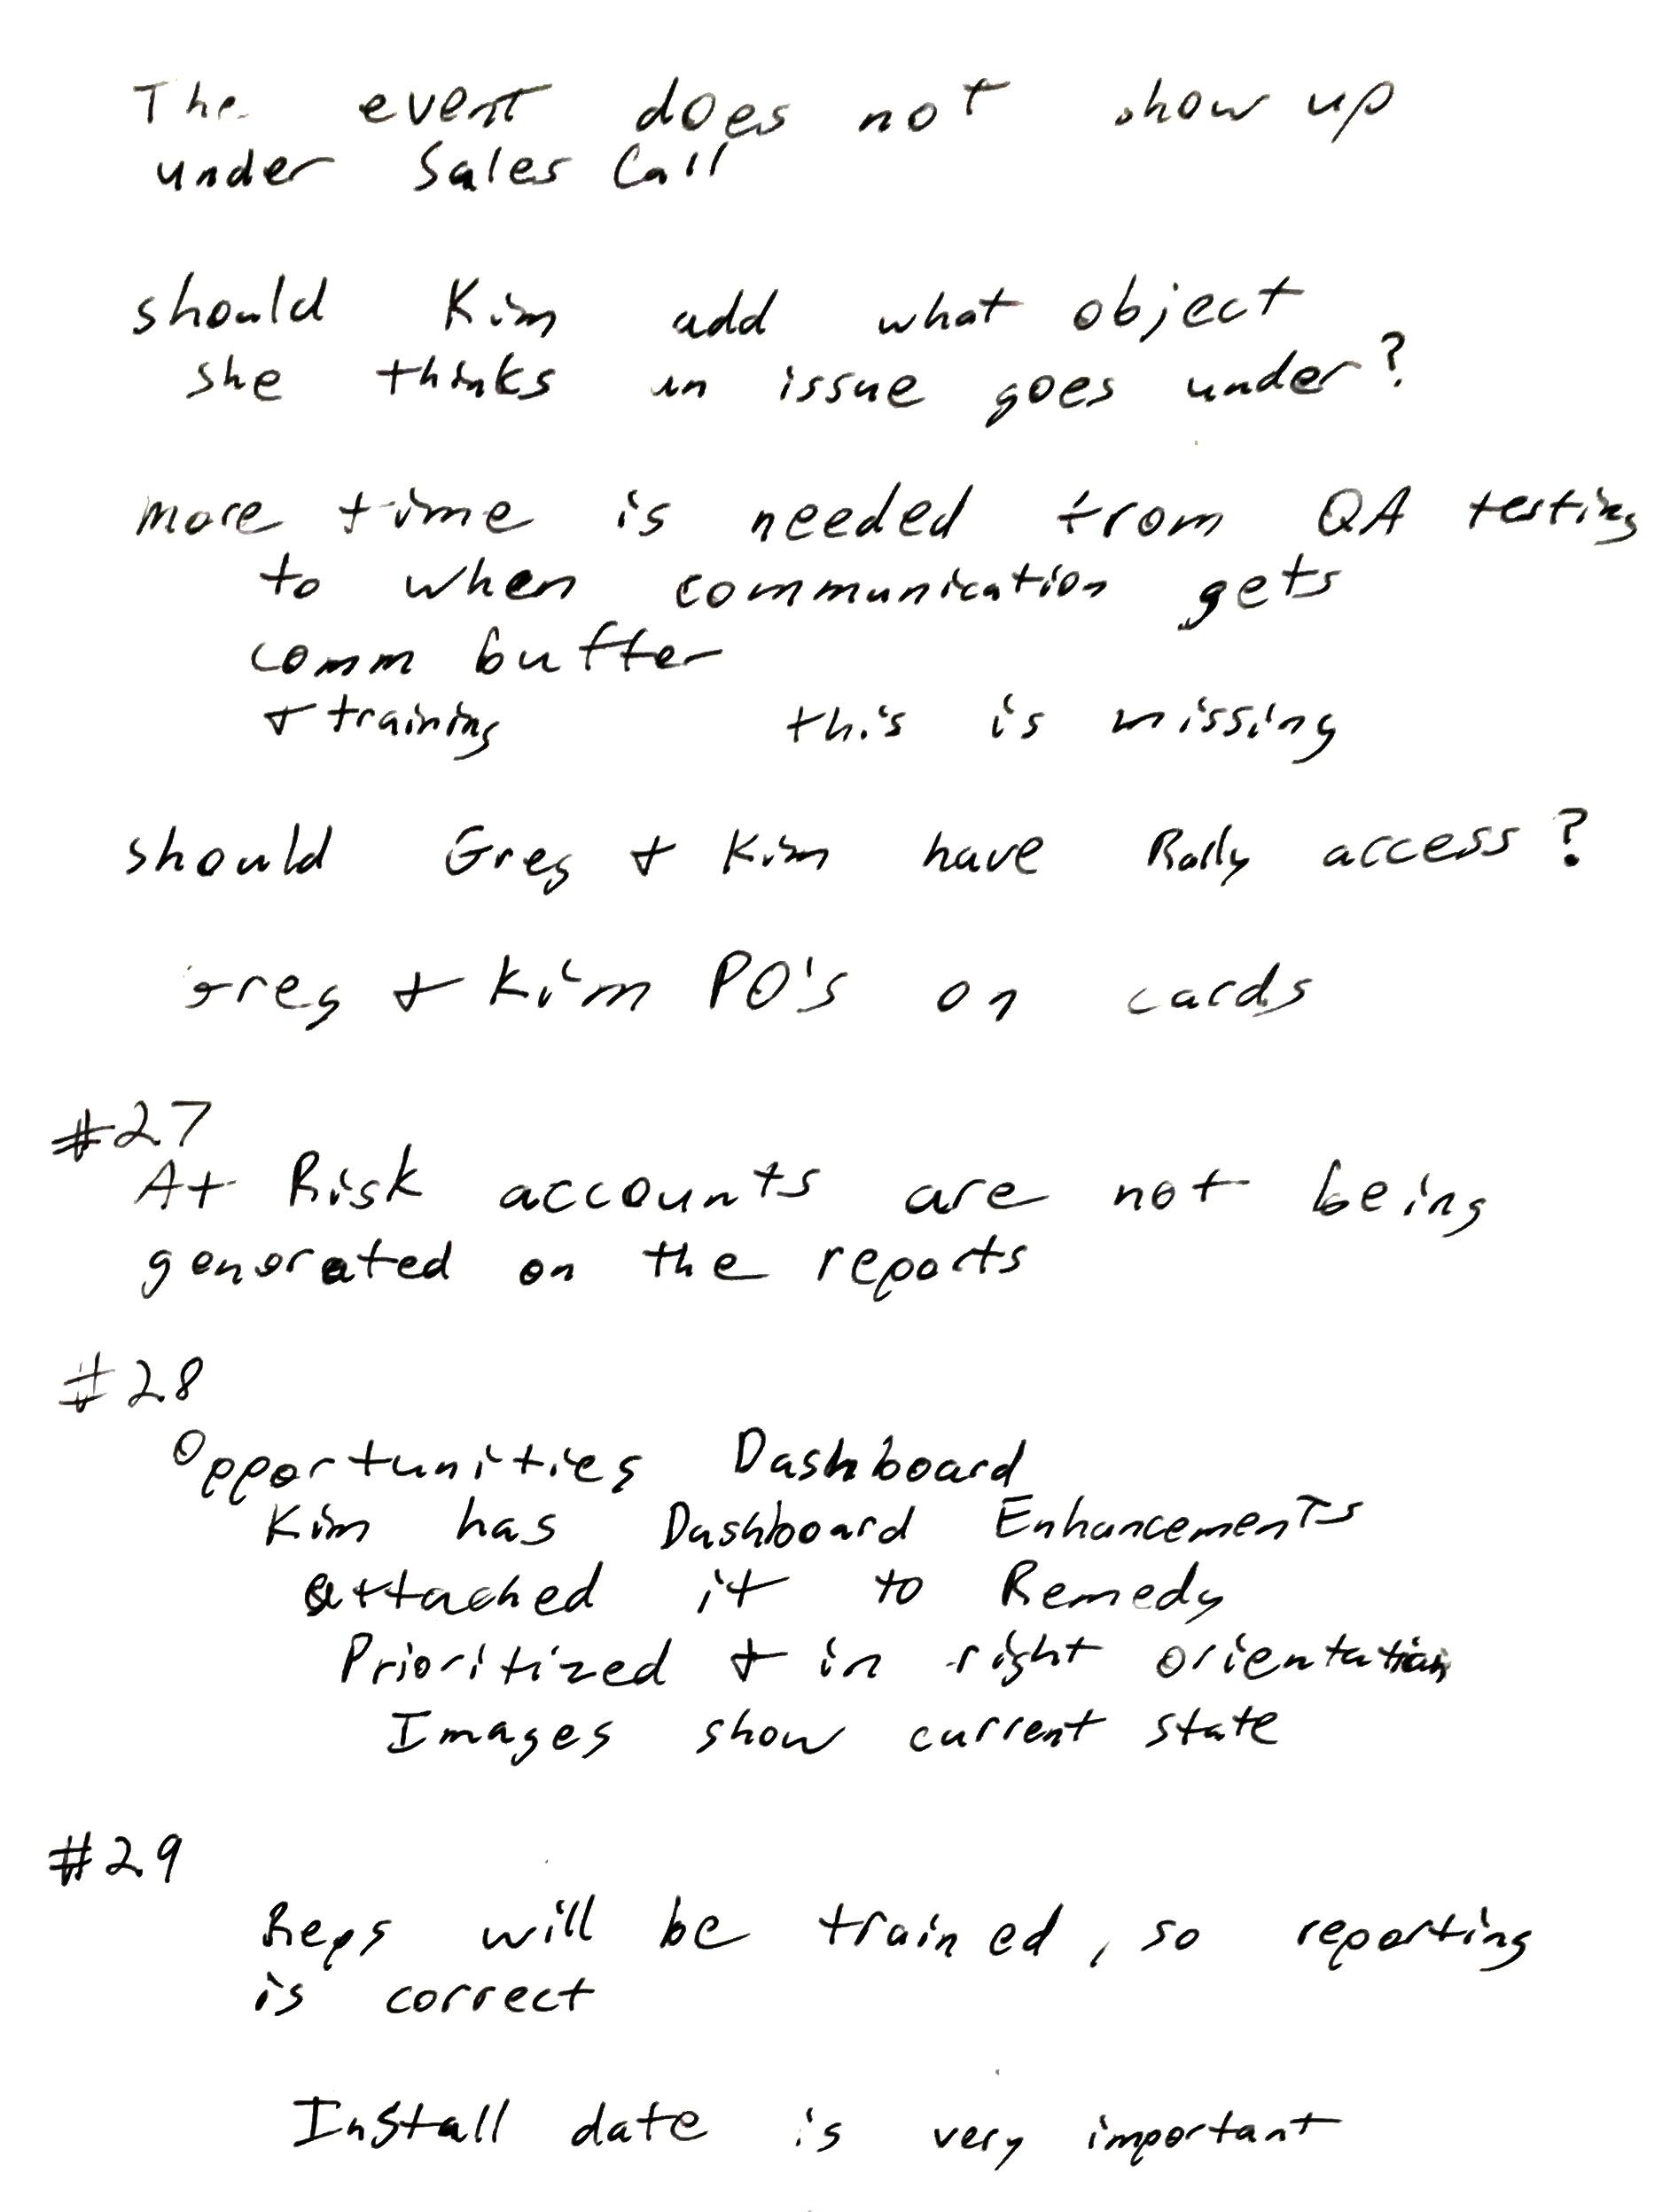 The event does not show up
under Sales Call
should Kim add what object
she thinks an issue goes under?
more time is needed from QA testing
to when communication gets
comm buffer
+ training this is missing
should Greg + Kim have Rally access?
Greg + Kim PO's on cards
#27
At Risk accounts are not being
generated on the reports
#28
Opportunities Dashboard
Kim has Dashboard Enhancements
attached it to Remedy
Prioritized + in right orientation
Images show current state
#29
Reps will be trained, so reporting
is correct
Install date is very important